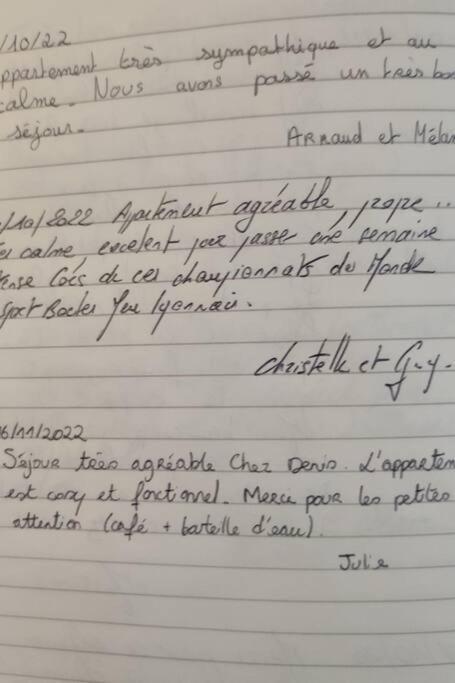 /10/22
ppartement très sympathique et au
calme. Nous avons passé un très bon
séjour.
Arnaud et Mélan
/10/2022 Appartement agréable, propre...
calme, excelent pour passer une semaine
ense lors de ces championnats du Monde
Lyonnais.
Christelle et Guy.
6/11/2022
Séjour très agréable chez Denis. L'appartem
est cosy et fonctionnel. Merci pour les petites
attention (café + bouteille d'eau).
Julie